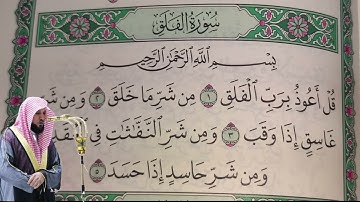 سُورَةُ الفَلَقِ
بِسْمِ اللَّهِ الرَّحْمَٰنِ الرَّحِيمِ
قُلْ أَعُوذُ بِرَبِّ ٱلْفَلَقِ ١ مِن شَرِّ مَا خَلَقَ ٢ وَمِن شَرِّ
غَاسِقٍ إِذَا وَقَبَ ٣ وَمِن شَرِّ ٱلنَّفَّٰثَٰتِ فِي
وَمِن شَرِّ حَاسِدٍ إِذَا حَسَدَ ٥